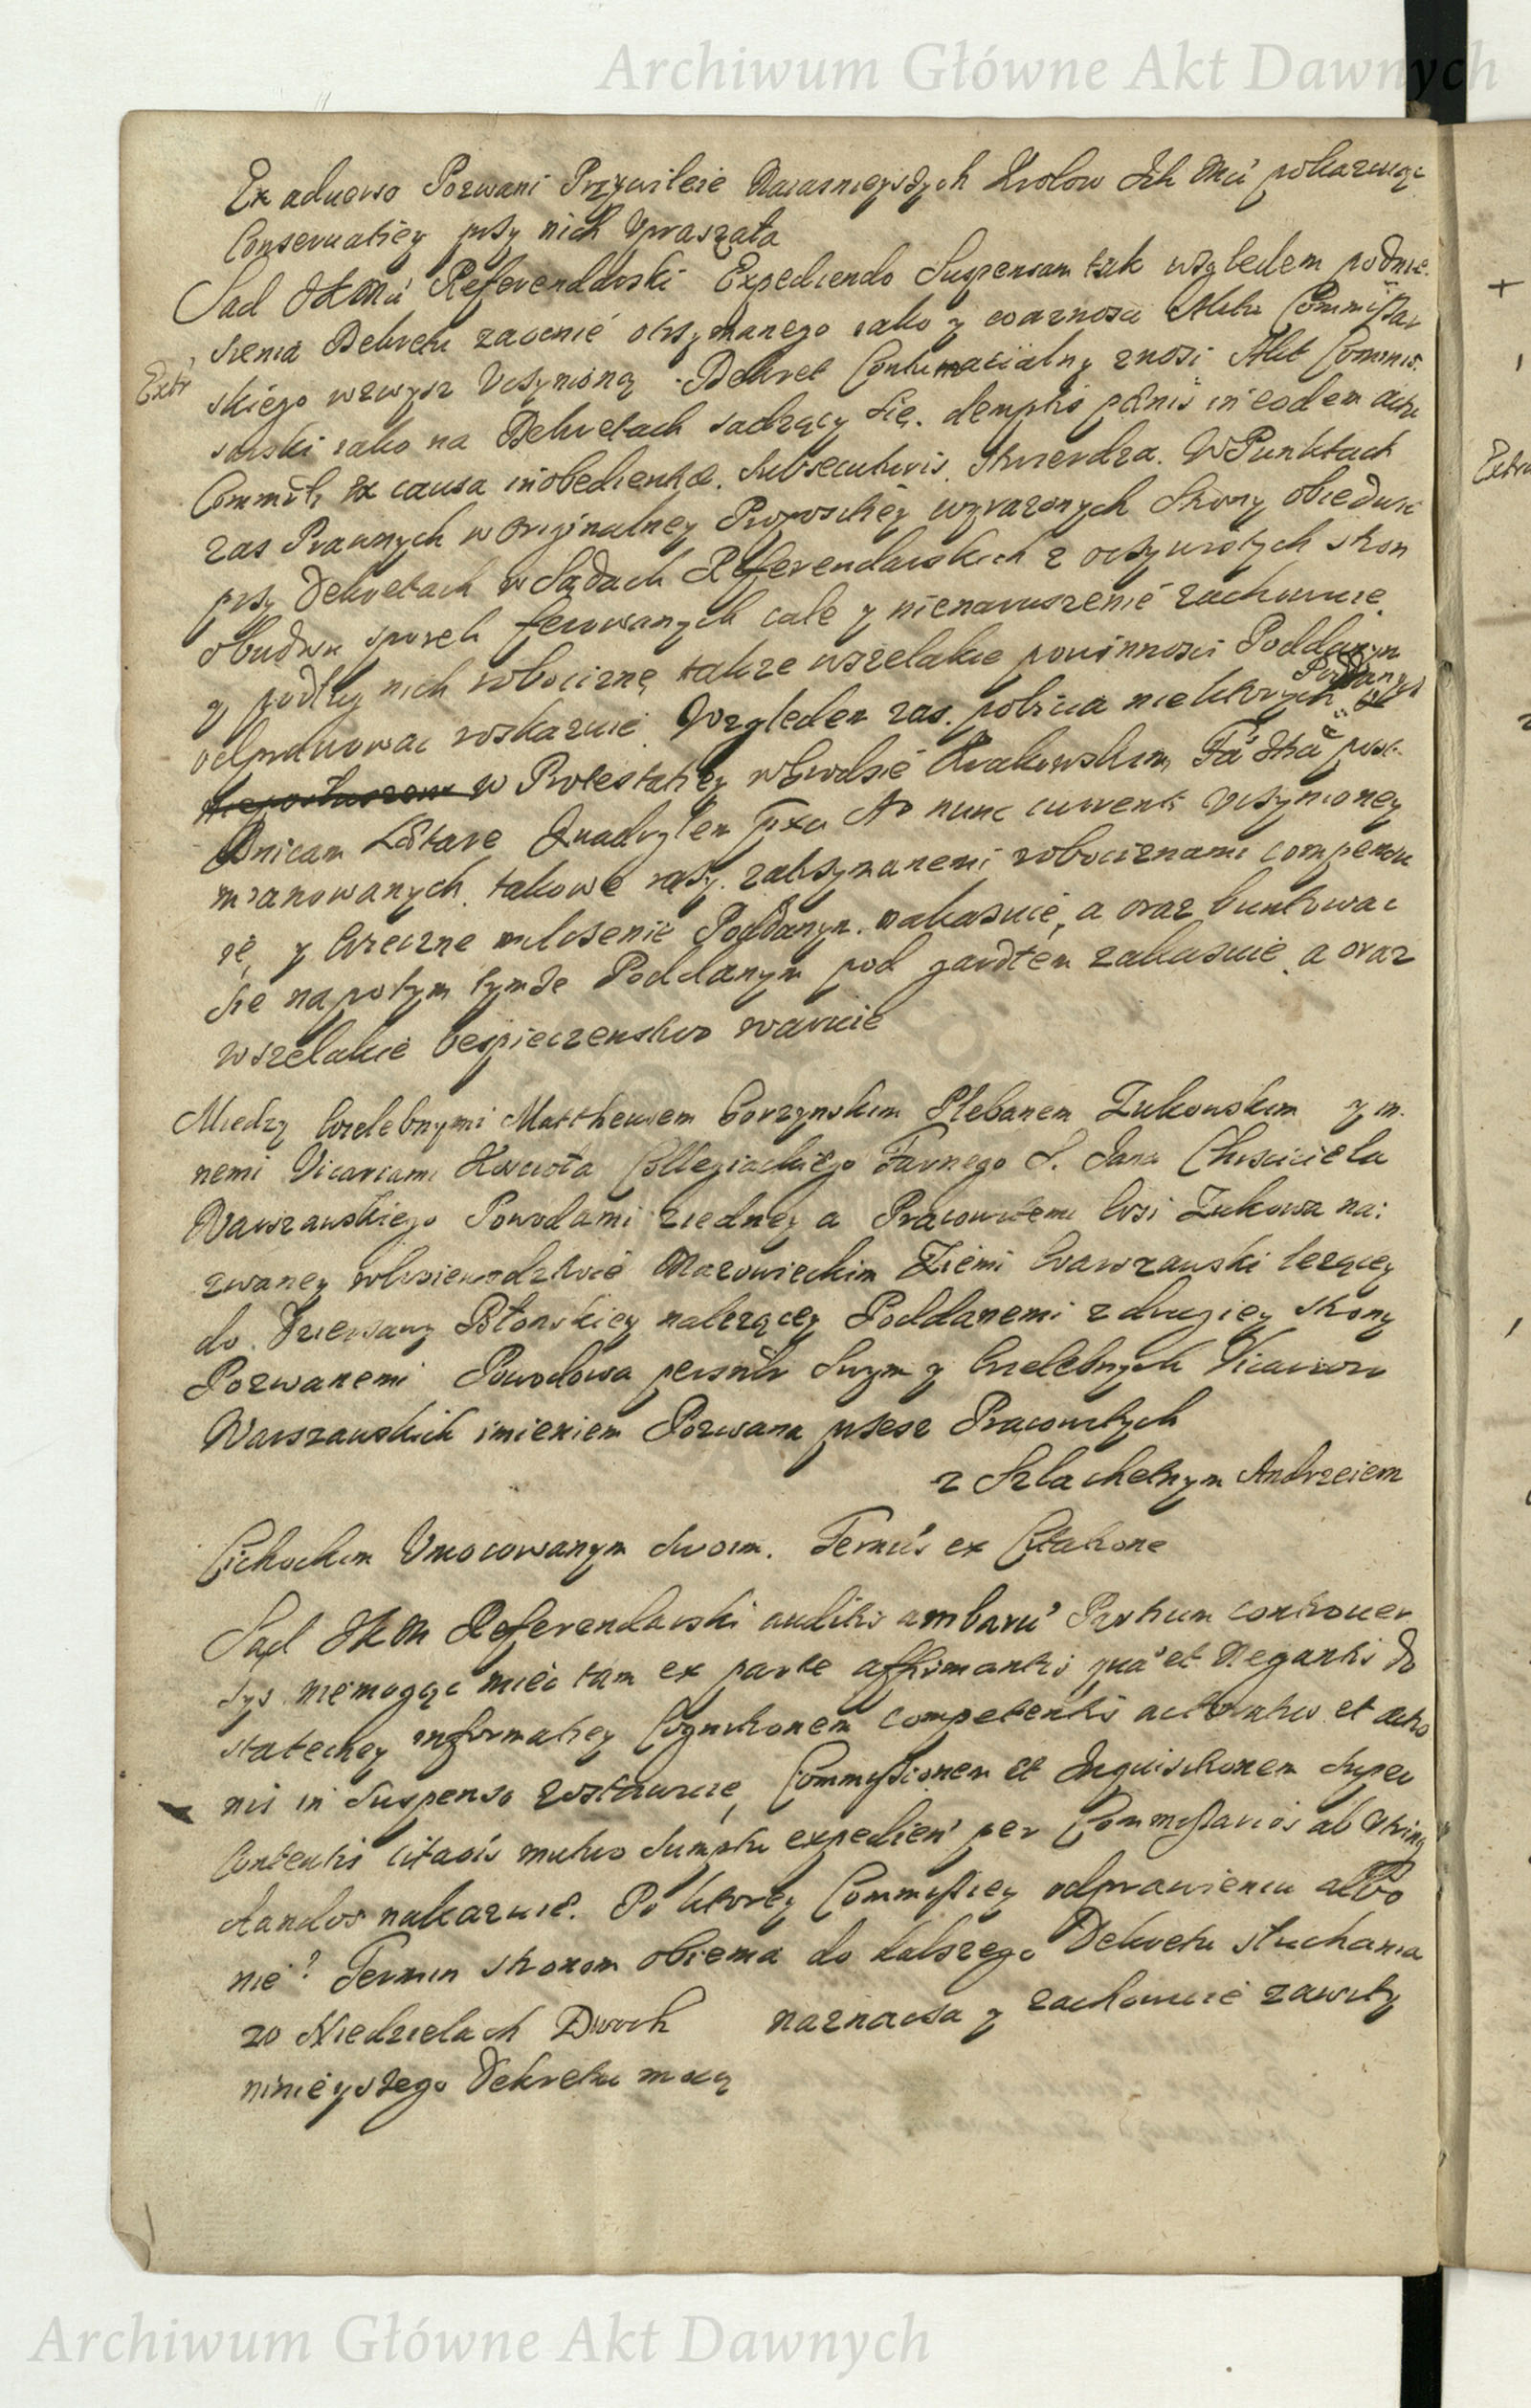 Archiwum Główne Akt Dawnych
Ex aduerso Pozwani Przywileie Naiasnieyszych Krolow Ich Mci pokazuiąc
Conseruatiey przy nich Vpraszała
Sad JKMci Referendarski Expediendo Suspensam tak względem podnie:
sienia Dekretu zaocnie otrzymanego iako y waznosci Aktu Commissar
Extr
skiego wzwysz Vczynioną. Dekret Contumacialny znosi Akt Commis:
sarski iako na Dekretach sadzący się. demptis pænis in eodem actu
Commis: ex causa inobedientiæ. subsecutivis, stwierdza. W Punktach
zas Prawnych w Originalney Propositiey wyrazonych Strony obiedwie
przy Dekretach w Sądach Referendarskich z oczywistych stron
obudwu sporek ferowanych cale y nienaruszenie zachowuie.
y podług nich robociznę takze wszelakie powinnosci Poddanym
odprawowac roskazuie. Względem zas. pobicia niektorych Poddanych
w Protestatiey w Grodzie Krakowskim, Fa Ita post
Dnicam Lætare Quadrgłem pxa Ao nunc currenti Vczynioney
mianowanych. takowe razy. zatrzymanemi robociznami compensu
ie, y wieczne milczenie Poddanym. nakazuie, a oraz buntowac
sie napotym tymze Poddanym pod gardłem zakazuie. a oraz
wszelakie bespieczenstwo waruie
Miedzy Wielebnymi Mattheuszem Gorzynskim Plebanem Zukowskim y in:
nemi Vicariami Koscioła Collegiackiego Farnego S. Jana Chrzciciela
Warszawskiego Powodami ziedney a Pracowitemi Wsi Zukowa na:
zwaney w Woiewodztwie Mazowieckim Ziemi Warszawski lezącey
do Dzierzawy Błonskiey nalezącey Poddanemi z drugiey strony
Pozwanemi Powodowa persnlr Swym y Wielebnych Vicariow
Warszawskich imieniem Pozwana przez Pracowitych
z Szlachetnym Andrzeiem
Cichockim Vmocowanym swoim. Termis ex Citatione
Sąd JKM Referendarski auditis ambaru Partium controuer
sys niemogąc miec tam ex parte affirmantis qua et Negantis do
stateczney informatiey Cognitionem competentis actoratus et actio
nis in suspenso zostawuie, Commissionem et Inquisitionem super
Contentis citaois mutuo sumptu expedien per Commissarios ab utrinq
dandos nakazuie. Po ktorey Commissiey odprawieniu albo
nie? Termin stronom obiema do dalszego Dekretu słuchania
zo Niedzielach Dwoch naznacza y zachowuie zawity
ninieyszego Dekretu mocą
Archiwum Główne Akt Dawnych